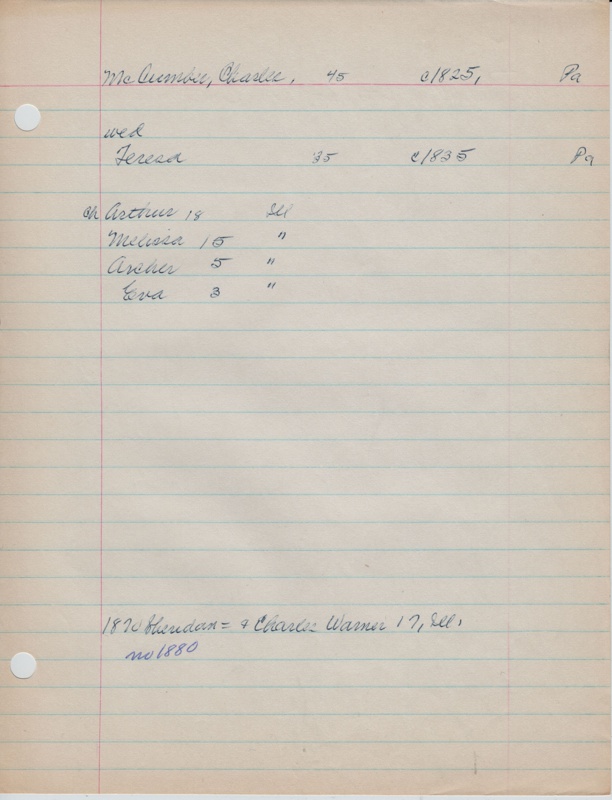 McCumber, Charles, 45 c/1825, Pa
wed
Teresa 35 c/1835 Pa
ch Arthur 18 Ill
Melissa 15 "
Archer 5 "
Eva 3 "
1870 Sheridan = & Charles Warner 17, Ill.
no 1880